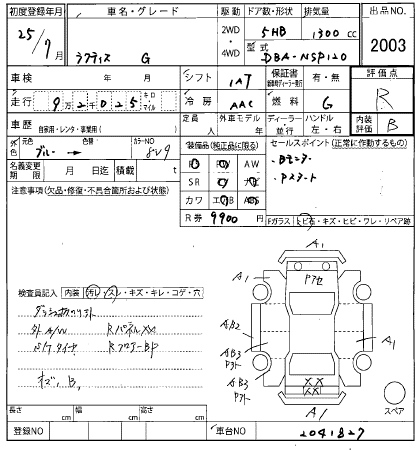 初度登録年月 車名・グレード 駆動 ドア数・形状 排気量 出品NO.
25/9月 ラクティス G 2WD・4WD 5HB 1300 cc 2003
型式 DBA-NSP120
車検 年 月 シフト 1AT 保証書 有・無 評価点
走行 9万2千025 キロ マイル 冷房 AAC 燃料 G R
車歴 自家用・レンタ・事業用( ) 定員 人 外車モデル 年 ディーラー 並行 ハンドル 左・右 内装評価 B
外色 元色 ブルー 色替 カラーNO 8V9 装備品(純正品に限る) セールスポイント(正常に動作するもの)
名義変更期限 月 日迄 積載 t AW
SR ナビ
カワ エアB
R券 9900 円
・Bモニター
・Pスタート
注意事項(欠品・修復・不具合箇所および状態)
Fガラス トビ石・キズ・ヒビ・ワレ・リペア跡
検査員記入 内装 汚レ・スレ・キズ・キレ・コゲ・穴
外A/W RパネルXX
S/Tタイヤ RフロアーBP
キズ、B,
A1
A1
Pアセ
AB2
AB3
Pアト
AB3
Pアト
A1
XX
XX
A1
スペア
長さ cm 幅 cm 高さ cm
登録NO 車台NO 2041827